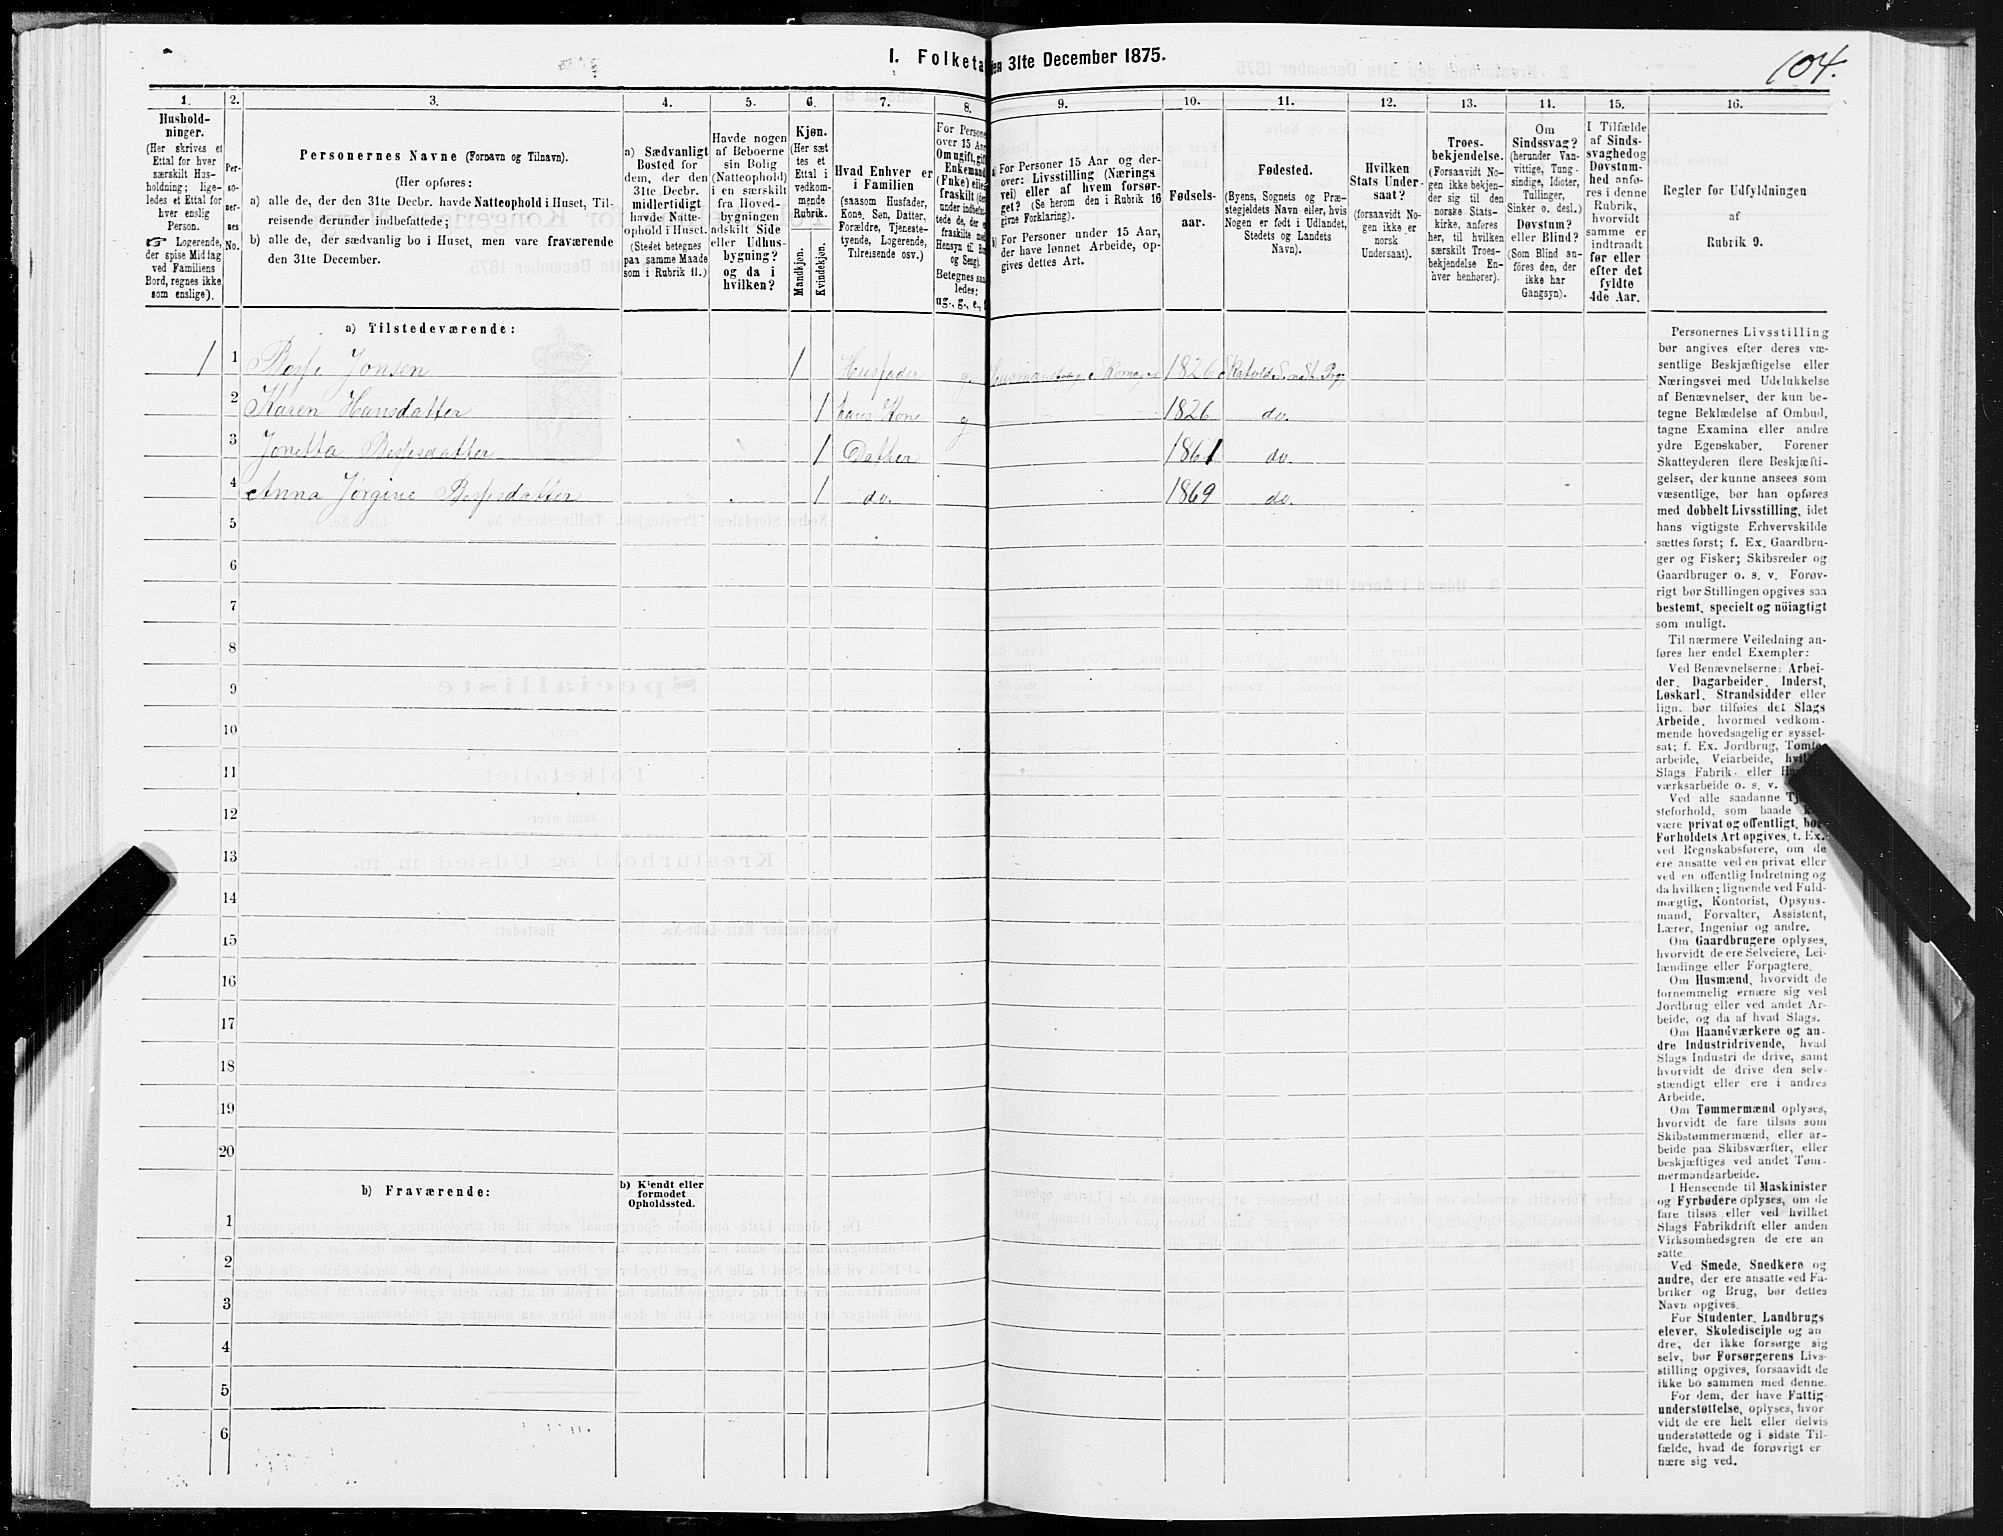 104.
1. Folketa en 31te December 1875.
1.
Hushold-
ninger.
(Her skrives et
Ettal for hver
særskilt Hus-
holdning; lige-
ledes et Ettal for
hver enslig
Person.
☞ Logerende,
der spise Middag
ved Familiens
Bord, regnes ikke
som enslige).
2.
Per-
so-
ner-
nes
No.
3.
Personernes Navne (Fornavn og Tilnavn).
(Her opføres:
a) alle de, der den 31te Decbr. havde Natteophold i Huset, Til-
reisende derunder indbefattede;
b) alle de, der sædvanlig bo i Huset, men vare fraværende
den 31te December.
4.
a) Sædvanligt
Bosted for
dem, der den
31te Decbr.
midlertidigt
havde Natte-
ophold i Huset.
(Stedet betegnes
paa samme Maade
som i Rubrik 11.)
5.
Havde nogen
af Beboerne
sin Bolig
(Natteophold)
i en særskilt
fra Hoved-
bygningen
adskilt Side
eller Udhus-
bygning?
og da i
hvilken?
6.
Kjøn.
(Her sæt
tes et
Ettal i
vedkom-
mende
Rubrik.
Mandkjøn.
Kvindekjøn.
7.
Hvad Enhver er
i Familien
(saasom Husfader,
Kone, Søn, Datter,
Forældre, Tjeneste-
tyende, Logerende,
Tilreisende osv.)
8.
For Persone
over 15 Aar
Om ugift, gift
Enkemand
(Enke) elle
fraskilt (der-
under indbefat-
tede de, der e
fraskilte med
Hensyn til Bo
og Seng).
Betegnes saa-
ledes:
ug., g., e.,
9.
a) For Personer 15 Aar og der-
over: Livsstilling (Nærings
vei) eller af hvem forsør-
get? (Se herom den i Rubrik 16
givne Forklaring).
b) For Personer under 15 Aar,
der have lønnet Arbeide, op-
gives dettes Art.
10.
Fødsels-
aar.
11.
Fødested.
(Byens, Sognets og Præ-
stegjeldets Navn eller, hvis
Nogen er født i Udlandet,
Stedets og Landets
Navn).
12.
Hvilken
Stats Under-
saat?
(forsaavidt No-
gen ikke er
norsk
Undersaat).
13.
Troes-
bekjendelse.
(Forsaavidt No-
gen ikke bekjen-
der sig til den
norske Stats-
kirke, anføres
her, til hvilken
særskilt Troes-
bekjendelse En-
hver henhører).
14.
Om
Sindssvag?
(herunder Van-
vittige, Tung-
sindige, Idioter,
Tullinger,
Sinker o. desl.)
Døvstum?
eller Blind?
(Som Blind an-
føres den, der
ikke har
Gangsyn).
15.
I Tilfælde
af Sinds-
svaghed og
Døvstum-
hed anfø-
res i denne
Rubrik,
hvorvidt
samme er
indtraadt
før eller
efter det
fyldte
4de Aar.
16.
Regler for Udfyldningen
af
Rubrik 9.
a) Tilstedeværende:
1 1 Jonsen 1 Husfader g. Skomager 1826
2 Karen Hansdatter 1 hans Kone g 1826 do.
3 Jonetta 1 Datter 1861 do.
4 Anna Jørgine 1 do. 1869 do.
5
6
7
8
9
10
11
12
13
14
15
16
17
18
19
20
b) Fraværende:
b) Kjendt eller
formodet
Opholdssted.
1
2
3
4
5
6
Personernes Livsstilling
bør angives efter deres væ-
sentlige Beskjæftigelse eller
Næringsvei med Udelukkelse
af Benævnelser, der kun be-
tegne Beklædelse af Ombud,
tagne Examina eller andre
ydre Egenskaber. Forener
Skatteyderen flere Beskjæfti-
gelser, der kunne ansees som
væsentlige, bør han opføres
med dobbelt Livsstilling, idet
hans vigtigste Erhvervskilde
sættes først; f. Ex. Gaardbru-
ger og Fisker; Skibsreder og
Gaardbruger o. s. v. Forøv-
rigt bør Stillingen opgives saa
bestemt, specielt og nöiagtigt
som muligt.
Til nærmere Veiledning an-
føres her endel Exempler:
Ved Benævnelserne: Arbei-
der, Dagarbeider, Inderst,
Løskarl, Strandsidder eller
lign. bør tilføies det Slags
Arbeide, hvormed vedkom-
mende hovedsagelig er syssel-
sat; f. Ex. Jordbrug, Tomte-
arbeide, Veiarbeide, hvil
Slags Fabrik- eller Ha
værksarbeide o. s. v.
Ved alle saadanne Tj
steforhold, som baade
være privat og offentligt, bør
Forholdets Art opgives, t. Ex.
ved Regnskabsførere, om de
ere ansatte ved en privat eller
ved en offentlig Indretning og
da hvilken; lignende ved Fuld-
mægtig, Kontorist, Opsyns-
mand, Forvalter, Assistent,
Lærer, Ingeniør og andre.
Om Gaardbrugere oplyses,
hvorvidt de ere Selveiere, Lei-
lændinge eller Forpagtere.
Om Husmænd, hvorvidt de
fornemmelig ernære sig ved
Jordbrug eller ved andet Ar-
beide, og da af hvad Slags.
Om Haandværkere og an-
dre Industridrivende, hvad
Slags Industri de drive, samt
hvorvidt de drive den selv-
stændigt eller ere i andres
Arbeide.
Om Tømmermænd oplyses,
hvorvidt de fare tilsøs som
Skibstømmermænd, eller ar-
beide paa Skibsværfter, eller
beskjæftiges ved andet Tøm-
mermandsarbeide.
I Henseende til Maskinister
og Fyrbødere oplyses, om de
fare tilsøs eller ved hvilket
Slags Fabrikdrift eller anden
Virksomhedsgren de ere an-
satte.
Ved Smede, Snedkere og
andre, der ere ansatte ved Fa-
briker og Brug, bør dettes
Navn opgives.
For Studenter, Landbrugs
elever, Skoledisciple og an
dre, der ikke forsørge sig
selv, bør Forsørgerens Livs-
stilling opgives, forsaavidt de
ikke bo sammen med denne.
For dem, der have Fattig
understøttelse, oplyses, hvor-
vidt de ere helt eller delvis
understøttede og i sidste Til-
fælde, hvad de forøvrigt er
nære sig ved.